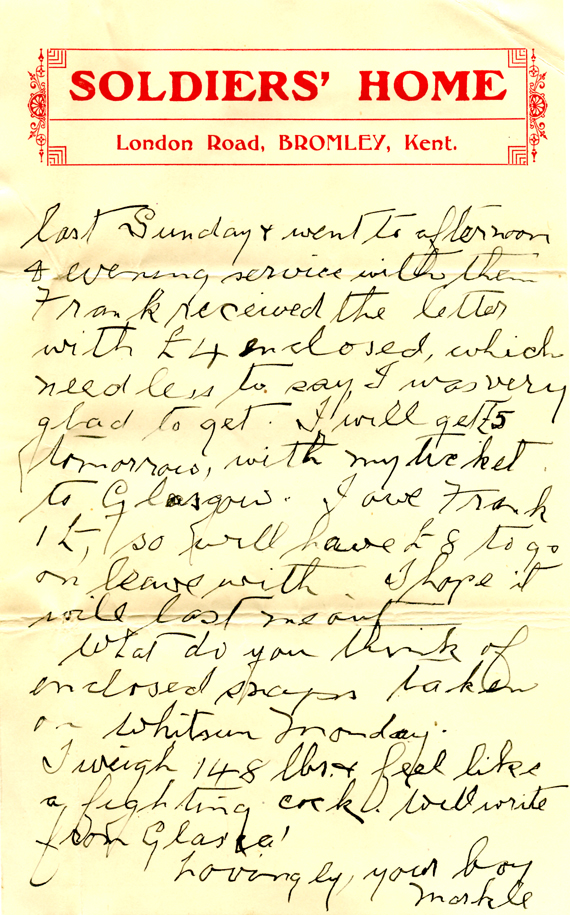 SOLDIERS' HOME
London Road, BROMLEY, Kent.
last Sunday & went to afternoon
& evening service with them
Frank received the letter
with £4 enclosed, which
needless to say, I was very
glad to get. I will get £5
tomorrow, with my ticket
to Glasgow. I owe Frank
1£, so will have £8 to go
on leave with I hope it
will last me out
What do you think of
enclosed snaps taken
on Whitsun Monday.
I weigh 148 lbs. & feel like
a fighting cock. Will write
from
Lovingly, your boy
Markle